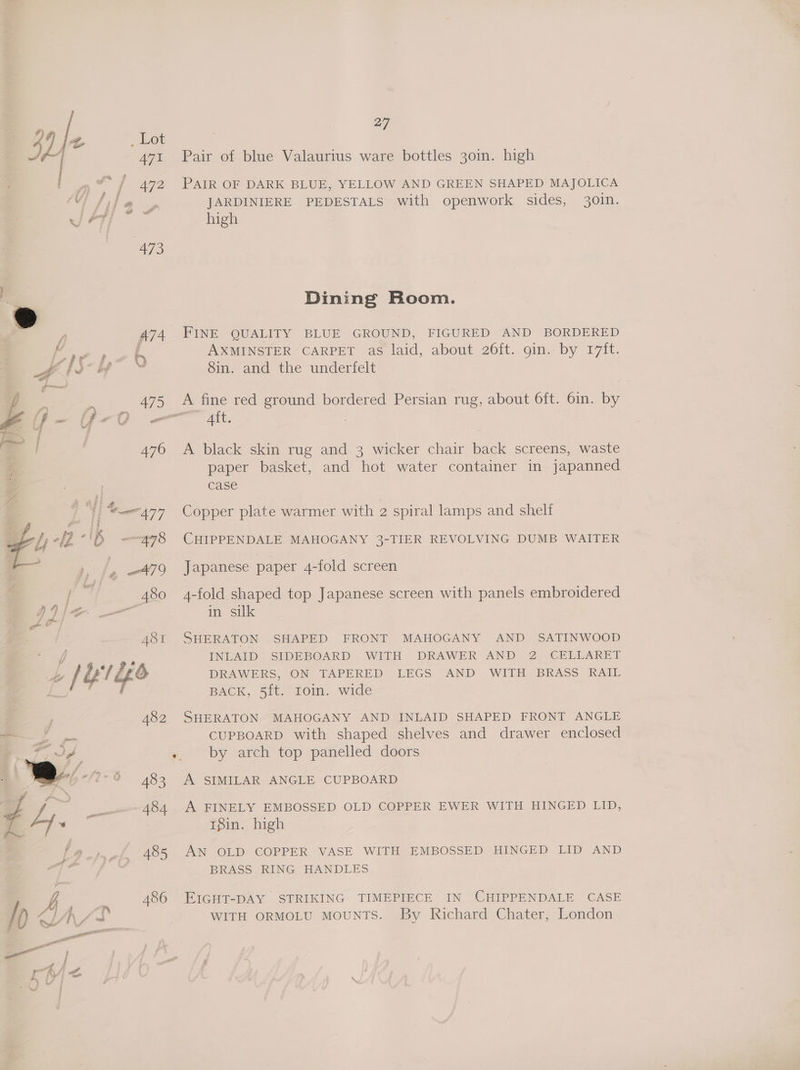 27
Lot
471 Pair of blue Valaurius ware bottles 30in. high
472 PAIR OF DARK BLUE, YELLOW AND GREEN SHAPED MAJOLICA
JARDINIERE PEDESTALS with openwork sides, 30in.
high
473
Dining Room.
474 FINE QUALITY BLUE GROUND, FIGURED AND BORDERED
AXMINSTER CARPET as laid, about 26ft. 9in. by 17ft.
8in. and the underfelt
475 A fine red ground bordered Persian rug, about 6ft. 6in. by
4ft.
476 A black skin rug and 3 wicker chair back screens, waste
paper basket, and hot water container in japanned
case
477 Copper plate warmer with 2 spiral lamps and shelf
478 CHIPPENDALE MAHOGANY 3-TIER REVOLVING DUMB WAITER
479 Japanese paper 4-fold screen
480 4-fold shaped top Japanese screen with panels embroidered
in silk
481 SHERATON SHAPED FRONT MAHOGANY AND SATINWOOD
INLAID SIDEBOARD WITH DRAWER AND 2 CELLARET
DRAWERS, ON TAPERED LEGS AND WITH BRASS RAIL
BACK, 5ft. 10in. wide
482 SHERATON MAHOGANY AND INLAID SHAPED FRONT ANGLE
CUPBOARD with shaped shelves and drawer enclosed
by arch top panelled doors
483 A SIMILAR ANGLE CUPBOARD
484 A FINELY EMBOSSED OLD COPPER EWER WITH HINGED LID,
18in. high
485 AN OLD COPPER VASE WITH EMBOSSED HINGED LID AND
BRASS RING HANDLES
486 EIGHT-DAY STRIKING TIMEPIECE IN CHIPPENDALE CASE
WITH ORMOLU MOUNTS. By Richard Chater, London